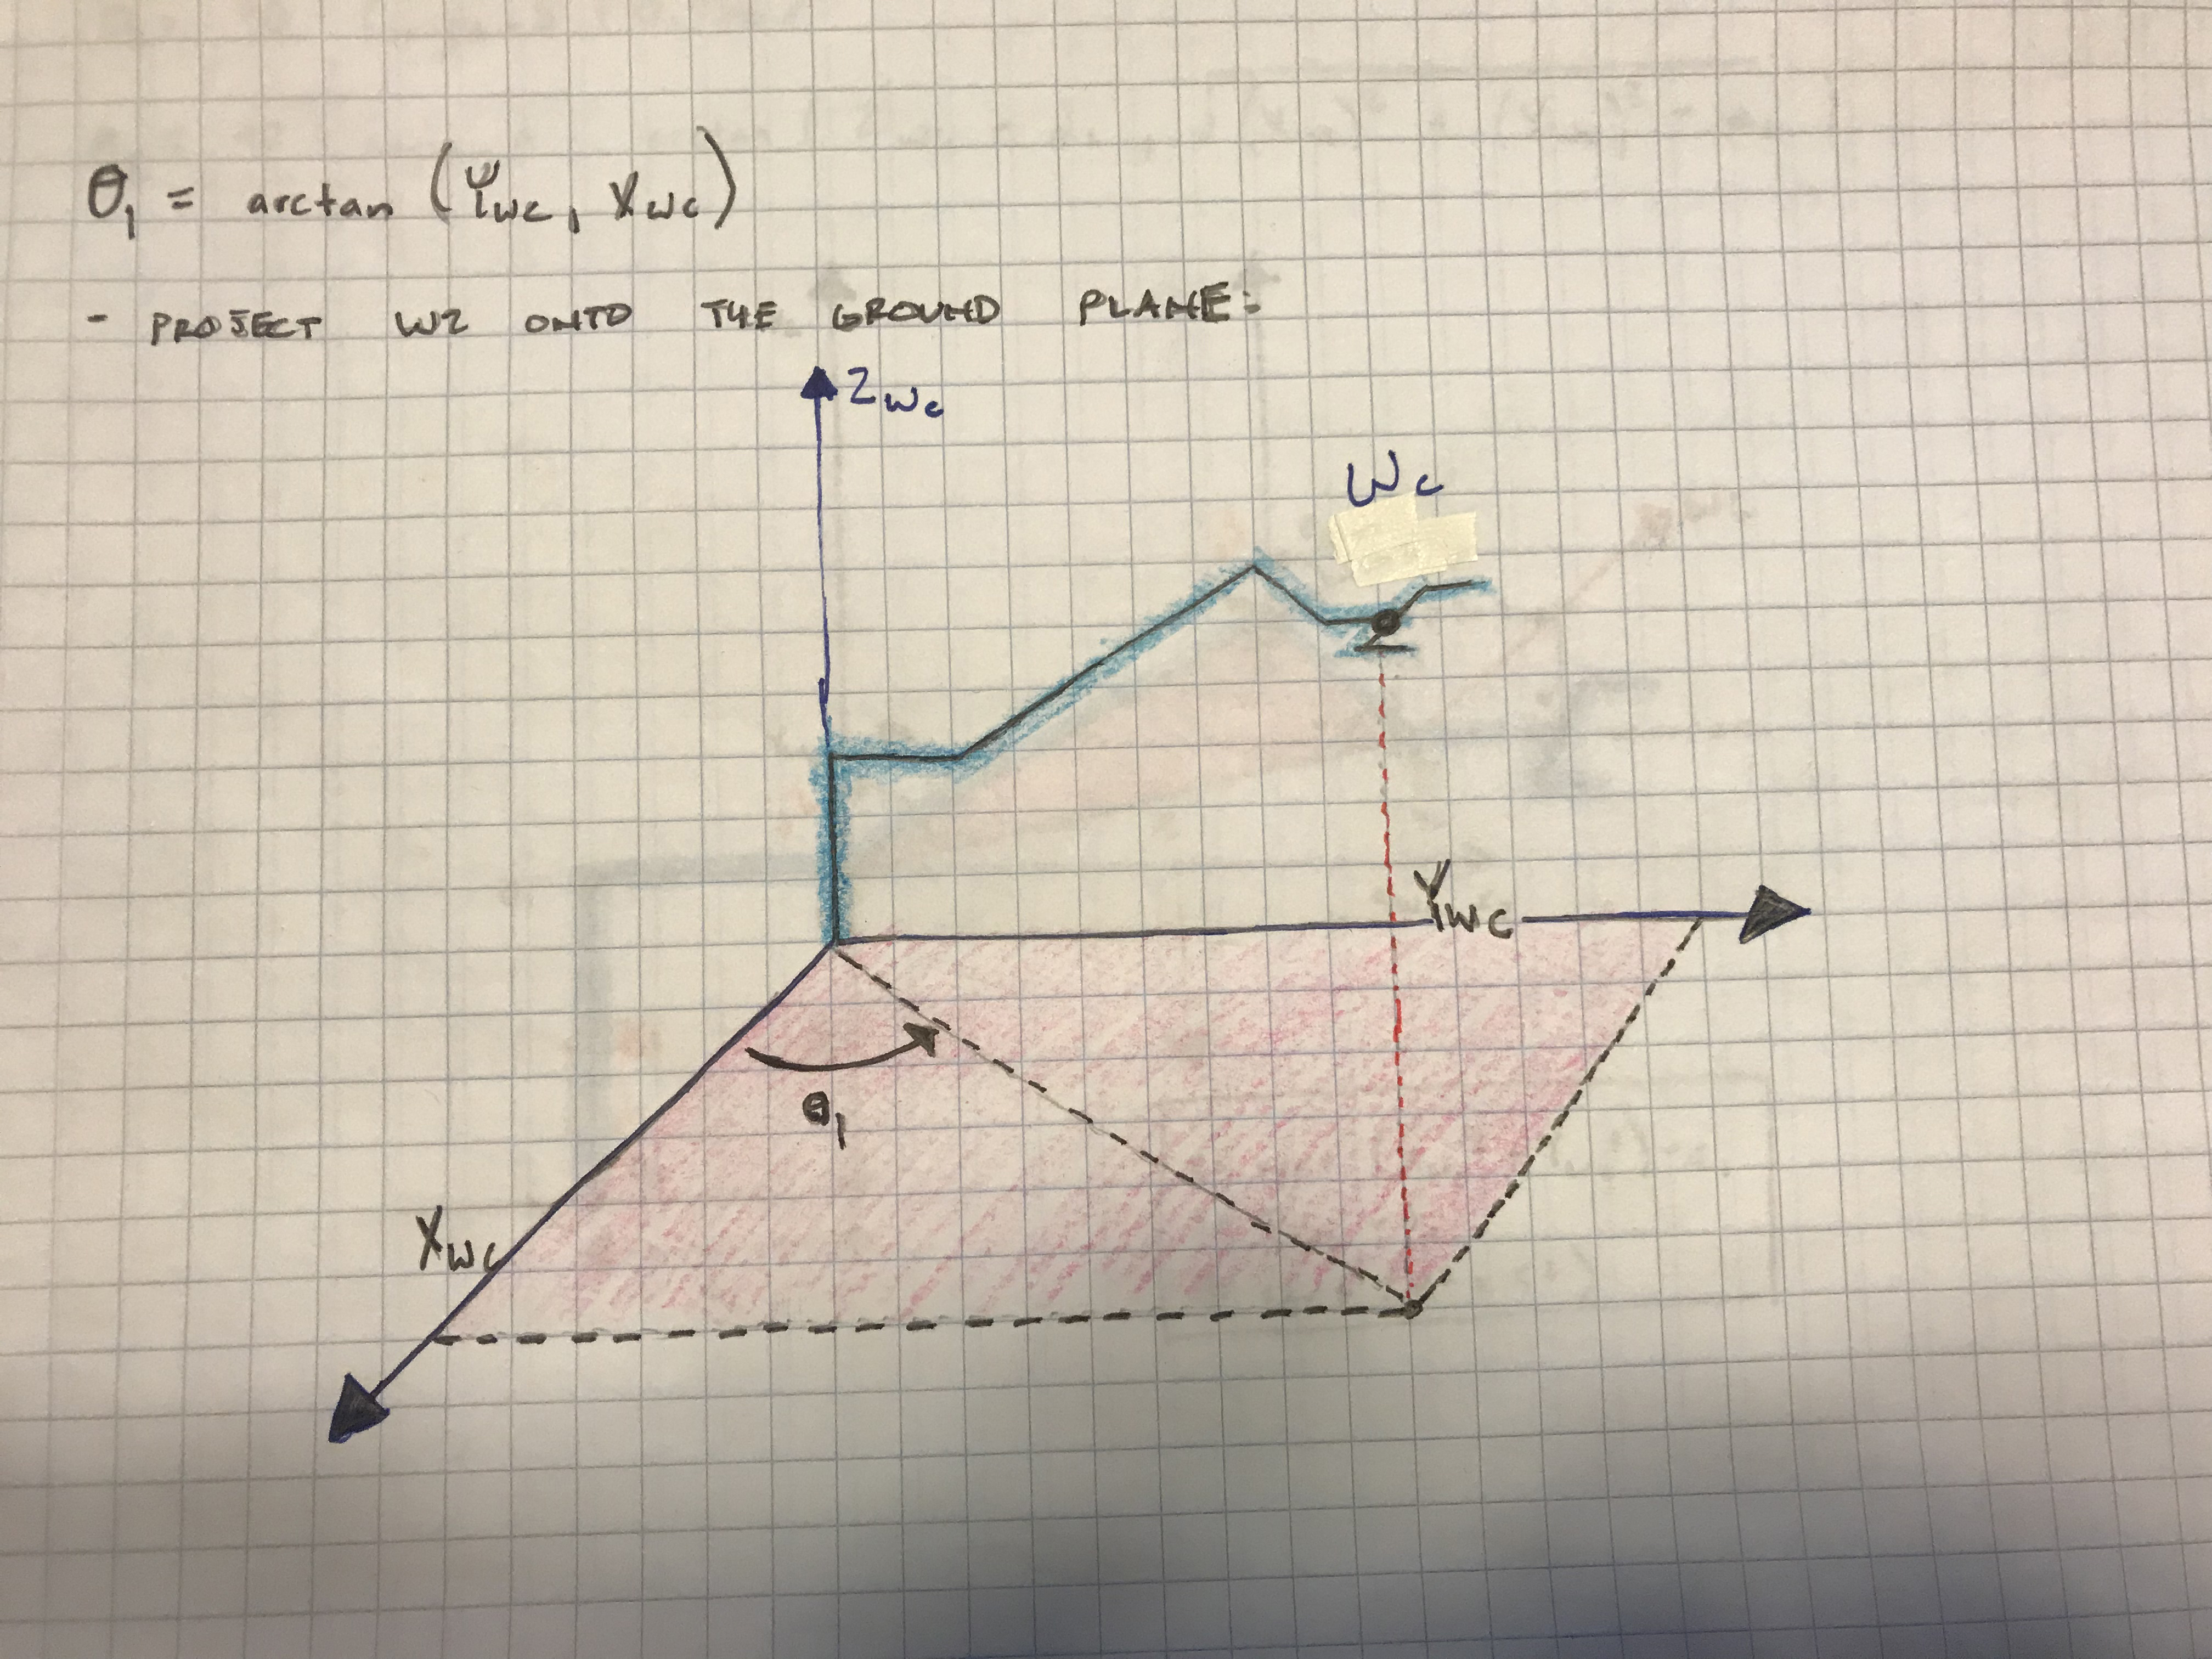 θ₁ = arctan (Ywc, Xwc)
- PROJECT WZ ONTO THE GROUND PLANE:
Zwc
Wc
Ywc
θ₁
Xwc